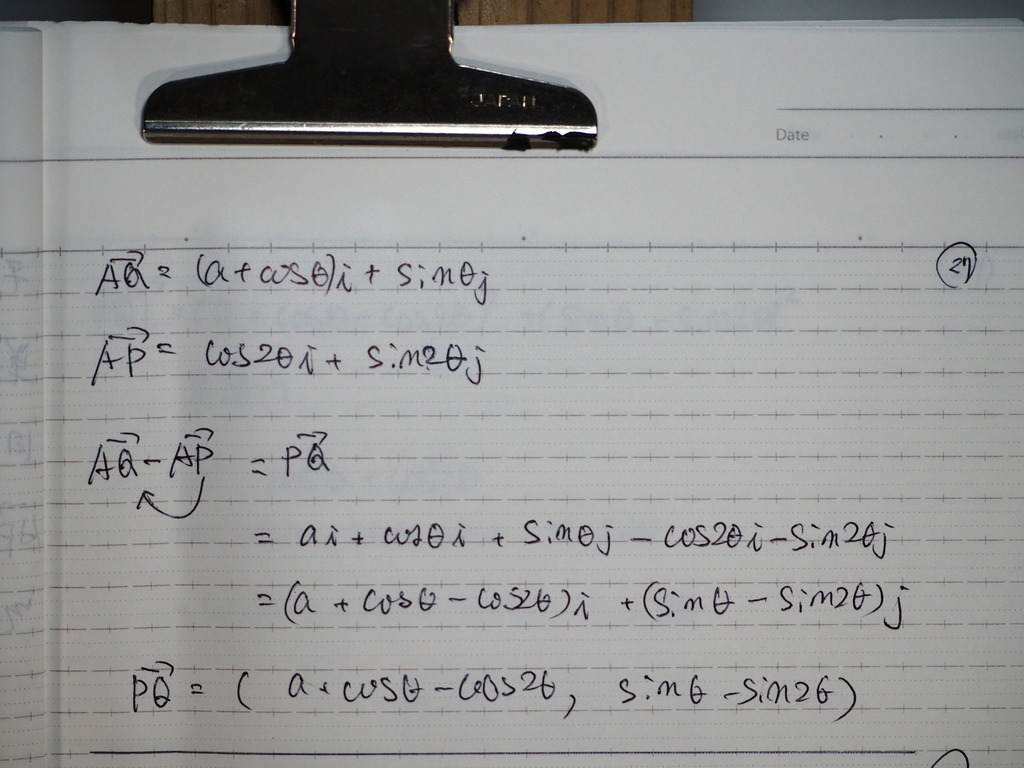 JAPAN
Date
AQ⃗ = (a + cosθ)i + sinθj
27
AP⃗ = cos2θi + sin2θj
AQ⃗ - AP⃗ = PQ⃗
= ai + cosθi + sinθj - cos2θi - sin2θj
= (a + cosθ - cos2θ)i + (sinθ - sin2θ)j
PQ⃗ = ( a + cosθ - cos2θ, sinθ - sin2θ)